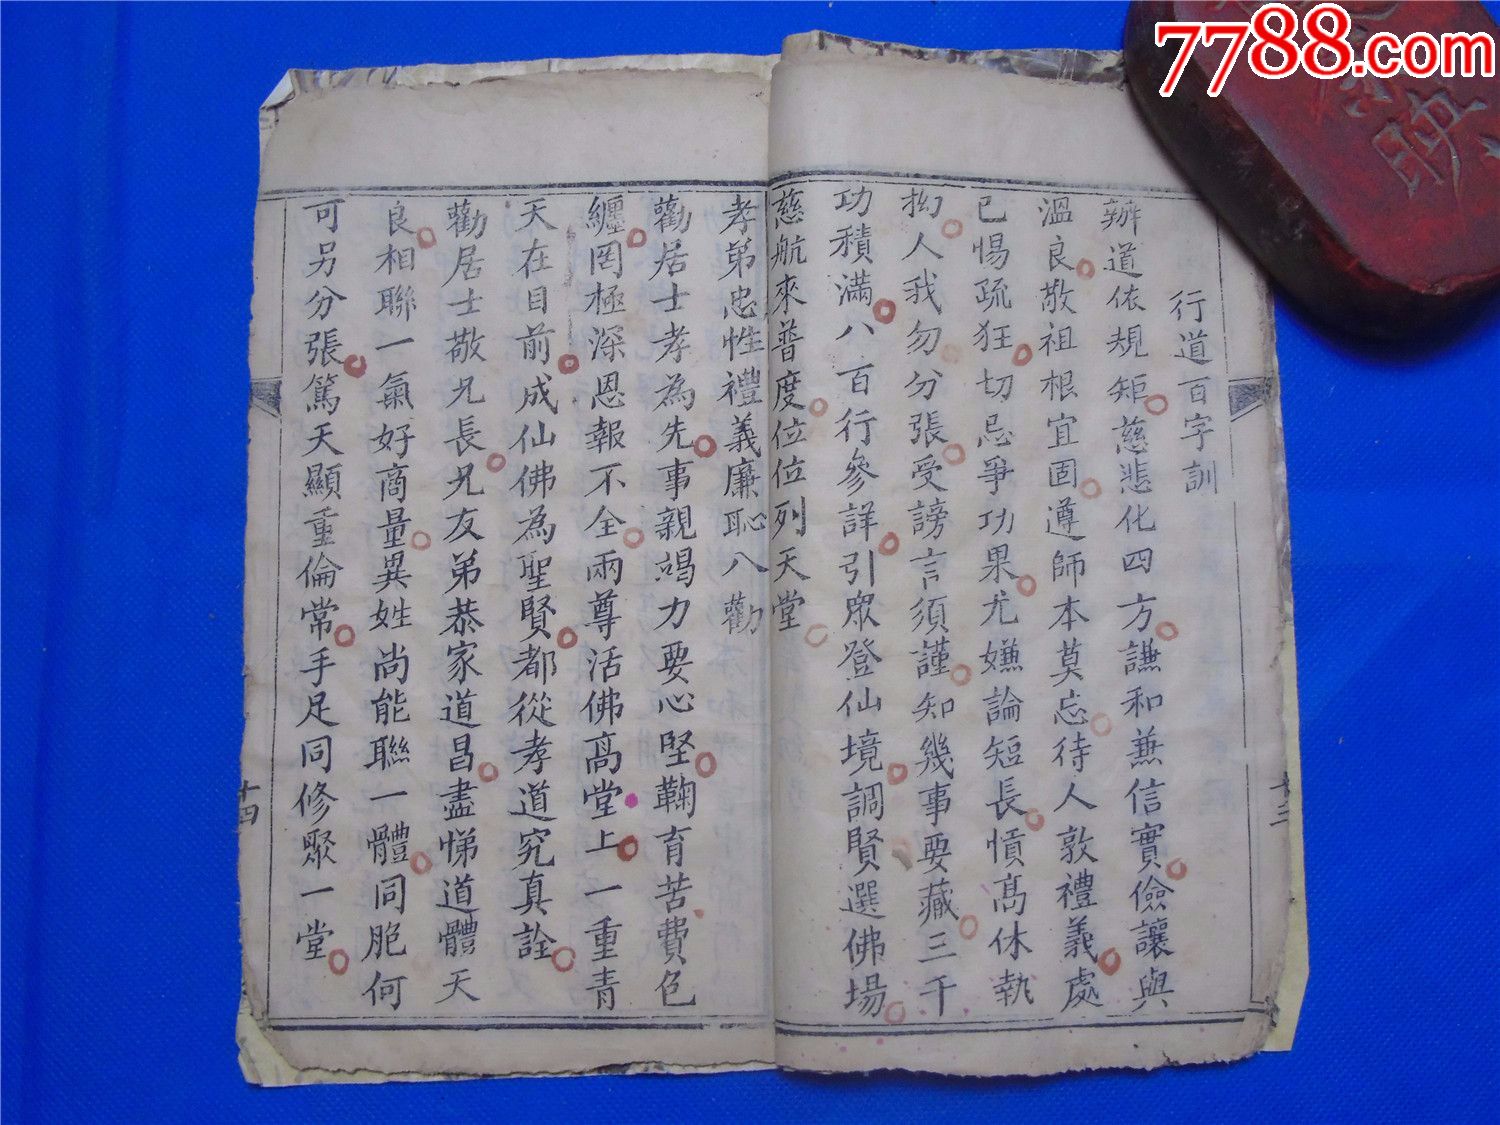 7788.com
行道百字訓
辦道依規矩慈悲化四方謙和兼信實儉讓與
溫良敬祖根宜固遵師本莫忘待人敦禮義處
己惕疏狂切忌爭功果尤嫌論短長慎高休執
拗人我勿分張受謗言須謹知幾事要藏三千
功積滿八百行參詳引眾登仙境調賢選佛場
慈航來普度位位列天堂
十三
孝弟忠性禮義廉恥八勸
勸居士孝為先事親竭力要心堅鞠育苦費包
纏罔極深恩報不全兩尊活佛高堂上一重青
天在目前成仙佛為聖賢都從孝道究真詮
勸居士敬兄長兄友弟恭家道昌盡悌道體天
良相聯一氣好商量異姓尚能聯一體同胞何
可另分張篤天顯重倫常手足同修聚一堂
十四